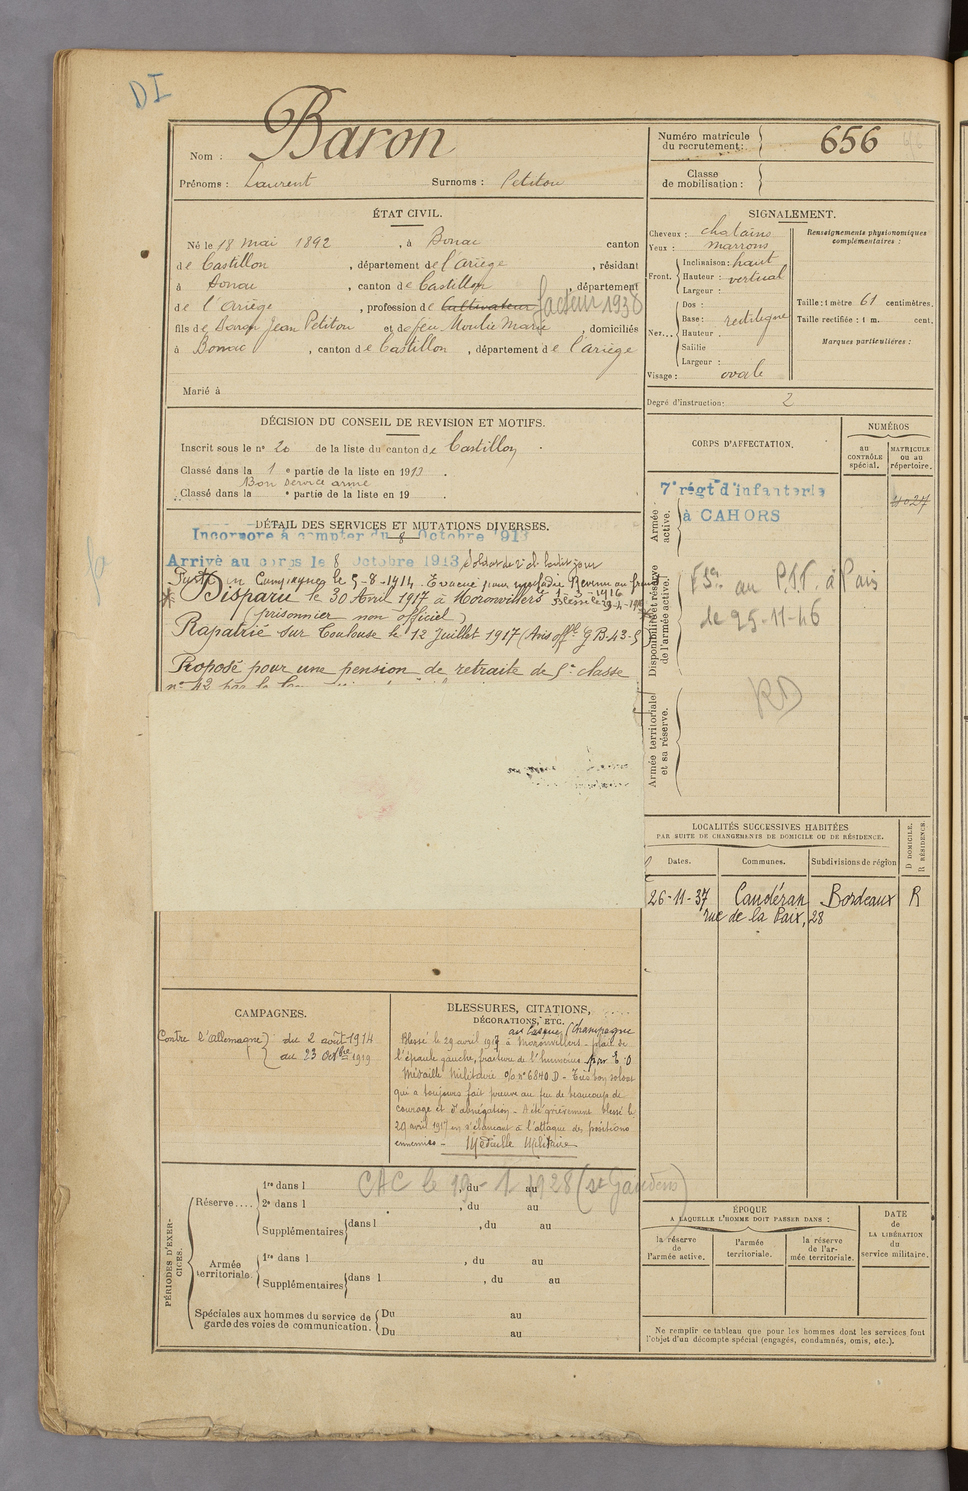 DI
Nom : Baron
Prénoms : Laurent Surnoms : Petitou
Numéro matricule du recrutement : 656
Classe de mobilisation :
ÉTAT CIVIL.
Né le 18 mai 1892, à Bonac canton
de Castillon, département de l'Ariège, résidant
à Bonac, canton de Castillon, département
de l'Ariège, profession de Cultivateur facteur 1938
fils de Baron Jean Petitou et de feu Moulié Marie, domiciliés
à Bonac, canton de Castillon, département de l'Ariège
Marié à
SIGNALEMENT.
Cheveux : chatains
Yeux : marrons
Front. Inclinaison : haut
Hauteur : vertical
Largeur :
Nez... Dos :
Base : rectiligne
Hauteur
Saillie
Largeur :
Visage : ovale
Renseignements physionomiques complémentaires :
Taille : 1 mètre 61 centimètres.
Taille rectifiée : 1 m. cent.
Marques particulières :
Degré d'instruction : 2
DÉCISION DU CONSEIL DE REVISION ET MOTIFS.
Inscrit sous le n° 20 de la liste du canton de Castillon
Classé dans la 1e partie de la liste en 1913.
Bon service armé
Classé dans la e partie de la liste en 19
DÉTAIL DES SERVICES ET MUTATIONS DIVERSES.
Incorporé à compter du 8 Octobre 1913
Arrivé au corps le 8 Octobre 1913, soldat de 2e cl. ledit jour
Parti en Campagne le 5-8-1914. Evacué pour maladie Revenu au front
Disparu le 30 Avril 1917 à Moronvilliers
(prisonnier non officiel)
Rapatrié sur Toulouse le 12 Juillet 1917 (Avis offel GB-43-5)
Proposé pour une pension de retraite de 5e classe
CORPS D'AFFECTATION.
NUMÉROS
au CONTRÔLE spécial.
MATRICULE ou au répertoire.
Armée active.
7e régt d'infanterie
à CAHORS
Disponibilité et réserve de l'armée active.
au P.T.T. à Paris
de 25-11-46
Armée territoriale et sa réserve.
RD
LOCALITÉS SUCCESSIVES HABITÉES
PAR SUITE DE CHANGEMENTS DE DOMICILE OU DE RÉSIDENCE.
Dates. Communes. Subdivisions de région D DOMICILE. R RÉSIDENCE.
26-11-37 Caudéran Bordeaux R
rue de la Paix, 28
CAMPAGNES.
Contre l'Allemagne : du 2 août 1914
au 23 Octbre 1919
BLESSURES, CITATIONS,
DÉCORATIONS, ETC.
au Casque (Champagne
Blessé le 29 avril 1917 à Moronvilliers - plaie de
l'épaule gauche, fracture de l'humérus par E.O
Médaille Militaire o/a n° 6840.D - Très bon soldat
qui a toujours fait preuve au feu de beaucoup de
courage et d'abnégation - A été grièvement blessé le
29 avril 1917 en s'élançant à l'attaque des positions
ennemies - Médaille Militaire
PÉRIODES D'EXERCICES.
CAC le 19-1-1928 (St Gaudens)
Réserve.... 1re dans l , du au
2e dans l , du au
Supplémentaires dans l , du au
Armée territoriale. 1re dans l , du au
Supplémentaires dans l , du au
Spéciales aux hommes du service de garde des voies de communication. Du au
Du au
ÉPOQUE
A LAQUELLE L'HOMME DOIT PASSER DANS :
la réserve de l'armée active.
l'armée territoriale.
la réserve de l'armée territoriale.
DATE de LA LIBÉRATION du service militaire.
Ne remplir ce tableau que pour les hommes dont les services font
l'objet d'un décompte spécial (engagés, condamnés, omis, etc.).